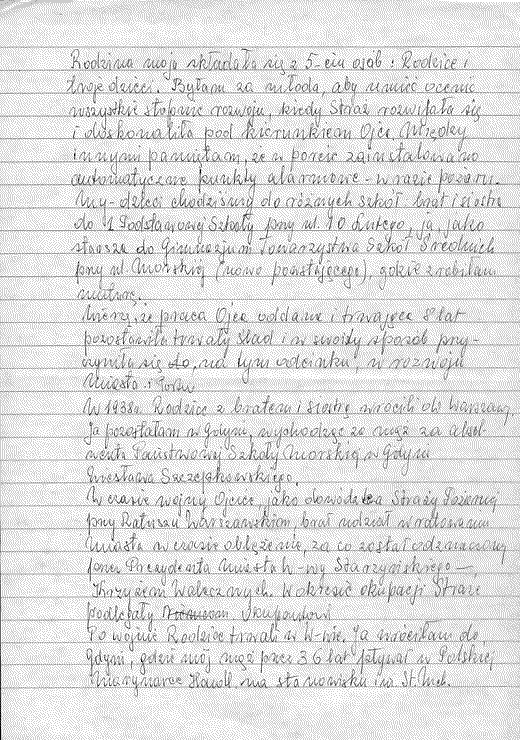 Rodzina moja składała się z 5-ciu osób: Rodzice i
troje dzieci. Byłam za młoda, aby umieć ocenić
wszystkie stopnie rozwoju, kiedy Straż rozwijała się
i doskonaliła pod kierunkiem Ojca. Między
innymi pamiętam, że w porcie zainstalowano
automatyczne punkty alarmowe - w razie pożaru.
My - dzieci chodziliśmy do różnych szkół - brat i siostra
do 1 Podstawowej Szkoły przy ul. 10 Lutego, ja, jako
starsza do Gimnazjum Towarzystwa Szkół Średnich
przy ul. Morskiej (nowo powstającego), gdzie zrobiłam
maturę.
Wierzę, że praca Ojca oddana i trwająca 8 lat
pozostawiła trwały ślad i w swoisty sposób przy-
czyniła się do, na tym odcinku, w rozwoju
miasta i Portu
W 1938r. Rodzice z bratem i siostrą wrócili do Warszawy,
ja pozostałam w Gdyni, wychodząc za mąż za absol-
wenta Państwowej Szkoły Morskiej w Gdyni
Wiesława Szczepkowskiego.
W czasie wojny Ojciec, jako dowódca Straży Pożarnej
przy Ratuszu Warszawskim, brał udział w ratowaniu
miasta w czasie oblężenia, za co został odznaczony
przez Prezydenta miasta W-wy Starzyńskiego -
Krzyżem Walecznych. W okresie okupacji Straże
podlegały Niemcom, okupantowi
Po wojnie Rodzice trwali w W-wie. Ja wróciłam do
Gdyni, gdzie mój mąż przez 36 lat pływał w Polskiej
Marynarce Handl. na stanowisku St. Mech.